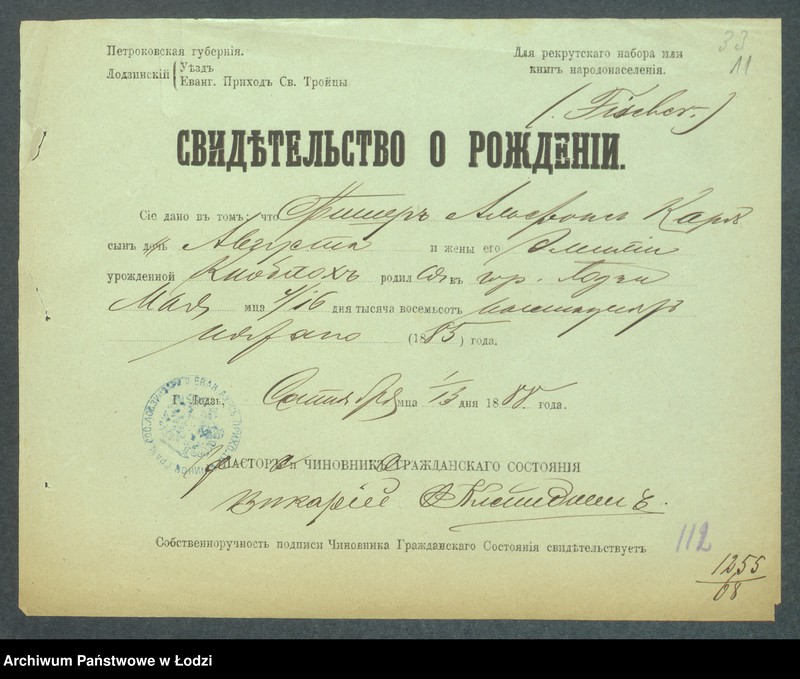 Петроковская губернія.
Лодзинскій { Уѣздъ
Еванг. Приходъ Св. Тройцы
Для рекрутскаго набора или
книгъ народонаселенія.
33
11
(Fischer.)
СВИДѢТЕЛЬСТВО О РОЖДЕНІИ.
Сіе дано въ томъ: что Фишеръ Альфонсъ Карлъ
сынъ дочь Августа и жены его Эмиліи
урожденной Кноблохъ родился въ гор. Лодзи
Мая мца 4/16 дня тысяча восемьсотъ восемьдесятъ
пятаго (1885) года.
Г. Лодзь, Сентября мца 1/13 дня 1888 года.
ПАСТОРЪ и ЧИНОВНИКЪ ГРАЖДАНСКАГО СОСТОЯНІЯ
Викарій
Собственноручность подписи Чиновника Гражданскаго Состоянія свидѣтельствуетъ
112
1255
08
Archiwum Państwowe w Łodzi